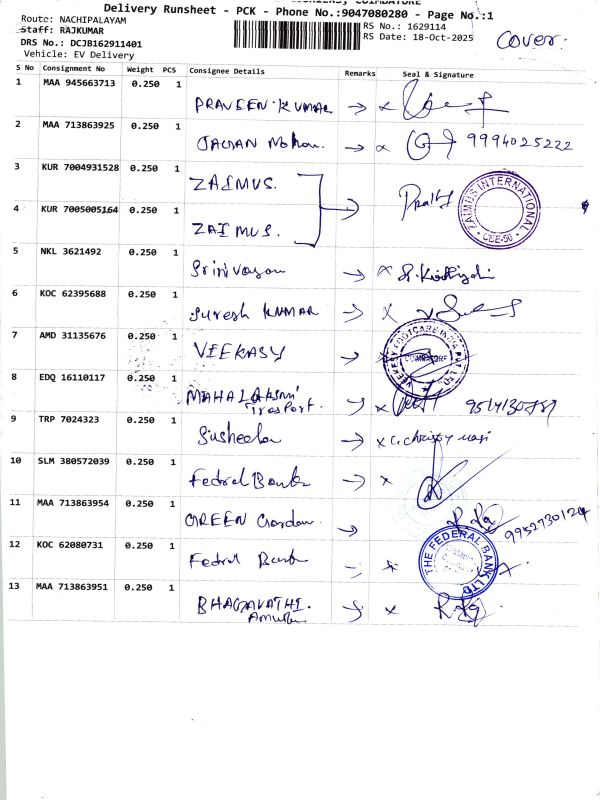 COIMBATORE
Delivery Runsheet - PCK - Phone No.:9047080280 - Page No.:1
Route: NACHIPALAYAM
RS No.: 1629114
Staff: RAJKUMAR
RS Date: 18-Oct-2025
Cover.
DRS No.: DCJB162911401
Vehicle: EV Delivery
S No Consignment No Weight PCS Consignee Details Remarks Seal & Signature
1 MAA 945663713 0.250 1 PRAVEEN KUMAR
2 MAA 713863925 0.250 1 Mohan. 9994025222
3 KUR 7004931528 0.250 1 ZAIMUS.
4 KUR 7005005164 0.250 1 ZAIMUS.
ZAIMUS INTERNATIONAL
CBE-50
5 NKL 3621492 0.250 1 Srinivasan
6 KOC 62395688 0.250 1 Suresh KUMAR
7 AMD 31135676 0.250 1 VEEKASY
VEEKESY FOOTCARE INDIA PVT LTD
COIMBATORE
8 EDQ 16110117 0.250 1 MAHALAKSMI
Trasport.
9 TRP 7024323 0.250 1 Susheela
10 SLM 380572039 0.250 1 Fedral Bank
11 MAA 713863954 0.250 1 GREEN Garden. 9952730124
12 KOC 62080731 0.250 1 Fedral Bank
THE FEDERAL BANK LTD
13 MAA 713863951 0.250 1 BHAGAVATHI.